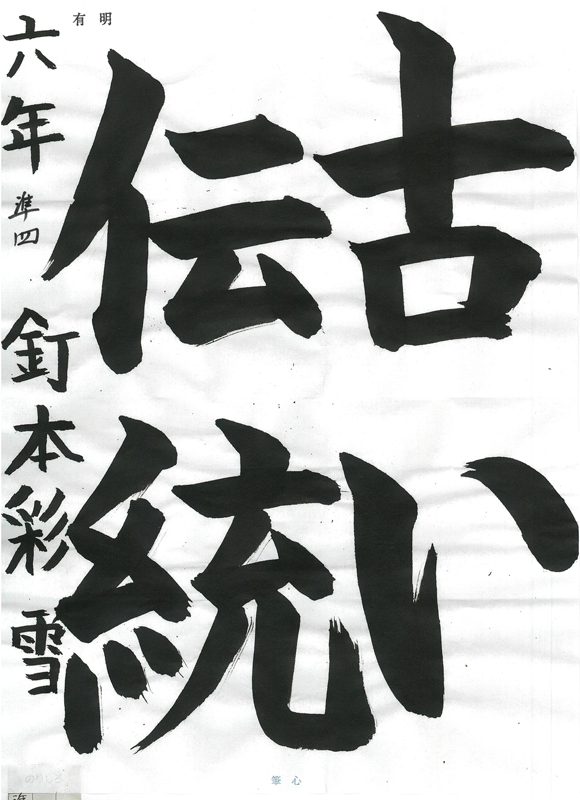 古い
伝統
六年 準四 釘本彩雪
有明
筆心
のりしろ